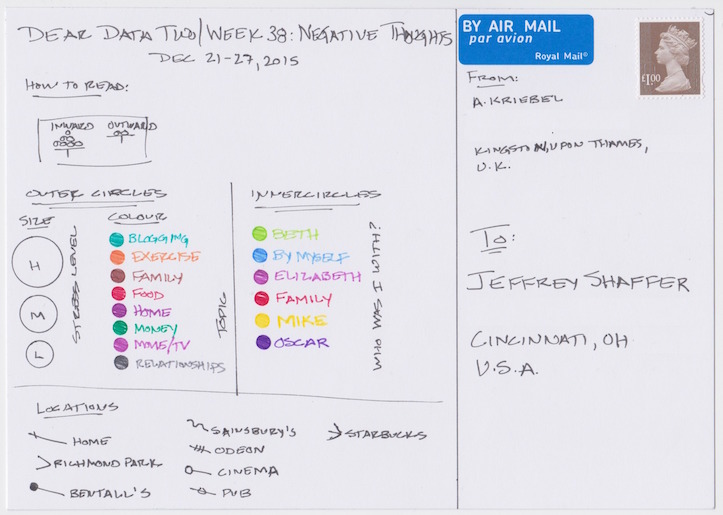 DEAR DATA TWO/WEEK 38: NEGATIVE THOUGHTS
DEC 21-27, 2015
HOW TO READ:
INWARD OUTWARD
OUTER CIRCLES
SIZE
H
M
L
STRESS LEVEL
COLOUR
BLOGGING
EXERCISE
FAMILY
FOOD
HOME
MONEY
MOVIE/TV
RELATIONSHIPS
TOPIC
INNER CIRCLES
BETH
BY MYSELF
ELIZABETH
FAMILY
MIKE
OSCAR
WHOM I WAS WITH?
LOCATIONS
HOME
RICHMOND PARK
BENTALL'S
SAINSBURY'S
ODEON
CINEMA
PUB
STARBUCKS
BY AIR MAIL
par avion
Royal Mail®
£1.00
FROM:
A. KRIEBEL
KINGSTON UPON THAMES,
U.K.
TO:
JEFFREY SHAFFER
CINCINNATI, OH
U.S.A.